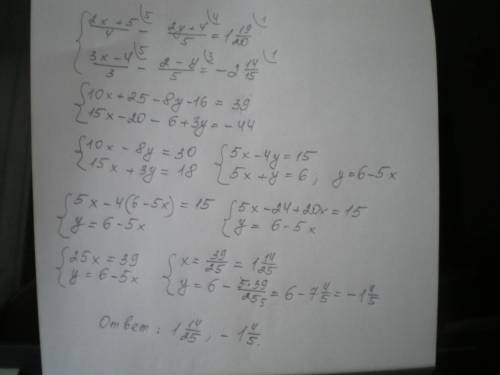 { (2x+5)/4 \5 - (2y+4)/5 \4 = 1 19/20 \1
{ (3x-4)/3 \5 - (2-y)/5 \3 = -2 14/15 \1
{ 10x+25-8y-16=39
{ 15x-20-6+3y=-44
{ 10x-8y=30 { 5x-4y=15
{ 15x+3y=18 { 5x+y=6, y=6-5x
{ 5x-4(6-5x)=15 { 5x-24+20x=15
{ y=6-5x { y=6-5x
{ 25x=39 { x=39/25=1 14/25
{ y=6-5x { y=6-5·39/25 5=6-7 4/5=-1 4/5
Ответ: 1 14/25, -1 4/5.